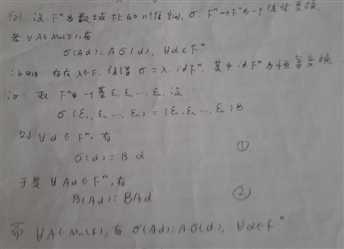 例1 设F^n为数域F上的n维空间, σ: F^n→F^n为一个线性变换
若∀A∈M_n(F), 有
σ(Aα)=Aσ(α), ∀α∈F^n
证明: 存在λ∈F, 使得 σ=λ·id_{F^n}, 其中 id_{F^n} 为恒等变换
证: 取F^n的一基 ε₁, ε₂, …, ε_n, 设
σ(ε₁, ε₂, …, ε_n) = (ε₁, ε₂, …, ε_n)B
则 ∀α∈F^n, 有
σ(α)=Bα ①
于是 ∀Aα∈F^n, 有
σ(Aα)=BAα ②
而 ∀A∈M_n(F), 有 σ(Aα)=Aσ(α), ∀α∈F^n